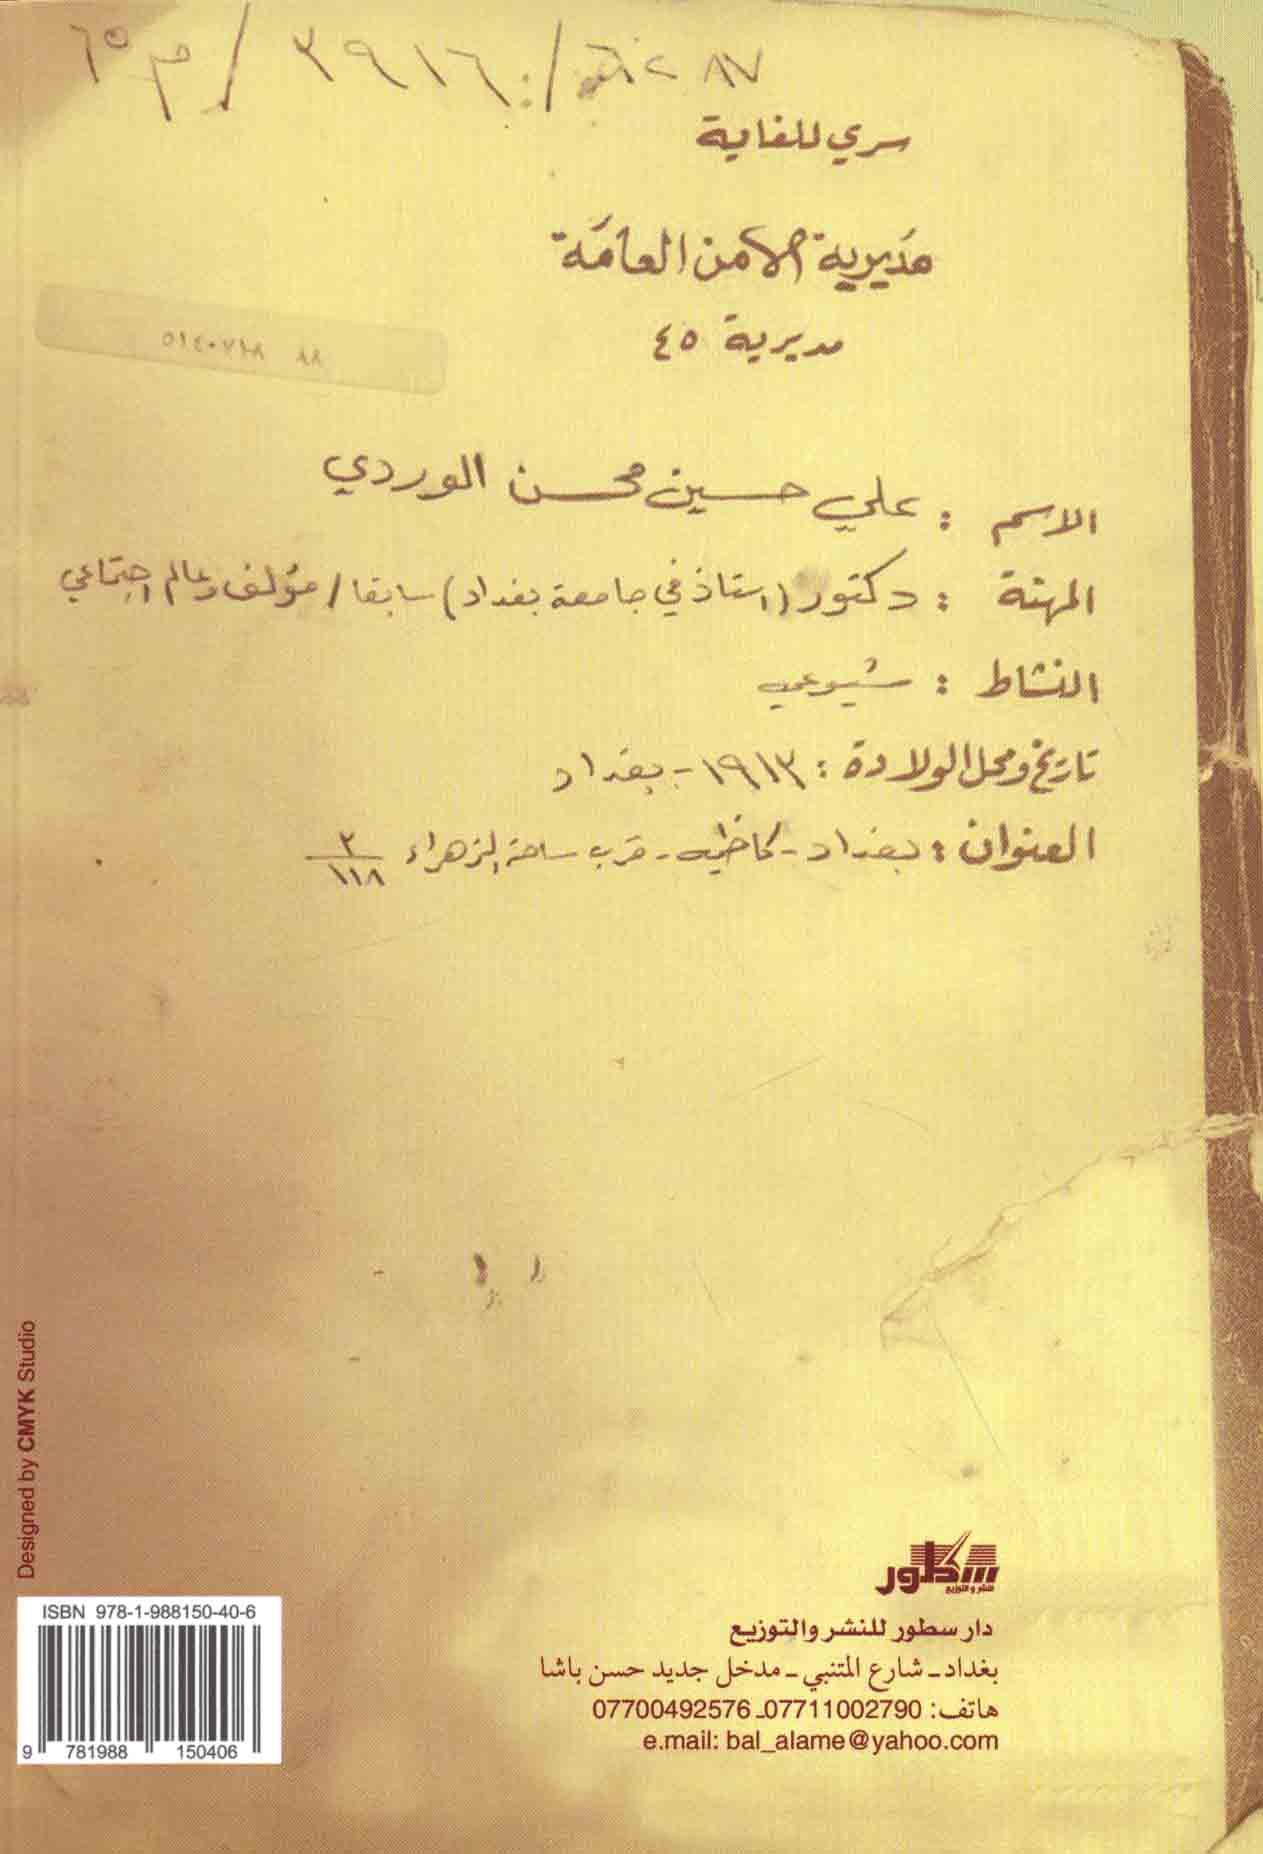 م٦٥ / ٣٩١٦ /
٨٧
سري للغاية
مديرية الامن العامة
مديرية ٤٥
الاسم : علي حسين محسن الوردي
المهنة : دكتور (استاذ في جامعة بغداد) سابقا / مؤلف وعالم اجتماعي
النشاط : شيوعي
تاريخ ومحل الولادة : ١٩١٣ - بغداد
العنوان : بغداد - كاظمية - قرب ساحة الزهراء ٣/١١٨
Designed by CMYK Studio
ISBN 978-1-988150-40-6
9 781988 150406
سطور
للنشر والتوزيع
دار سطور للنشر والتوزيع
بغداد - شارع المتنبي - مدخل جديد حسن باشا
هاتف: 07711002790 - 07700492576
e.mail: bal_alame@yahoo.com